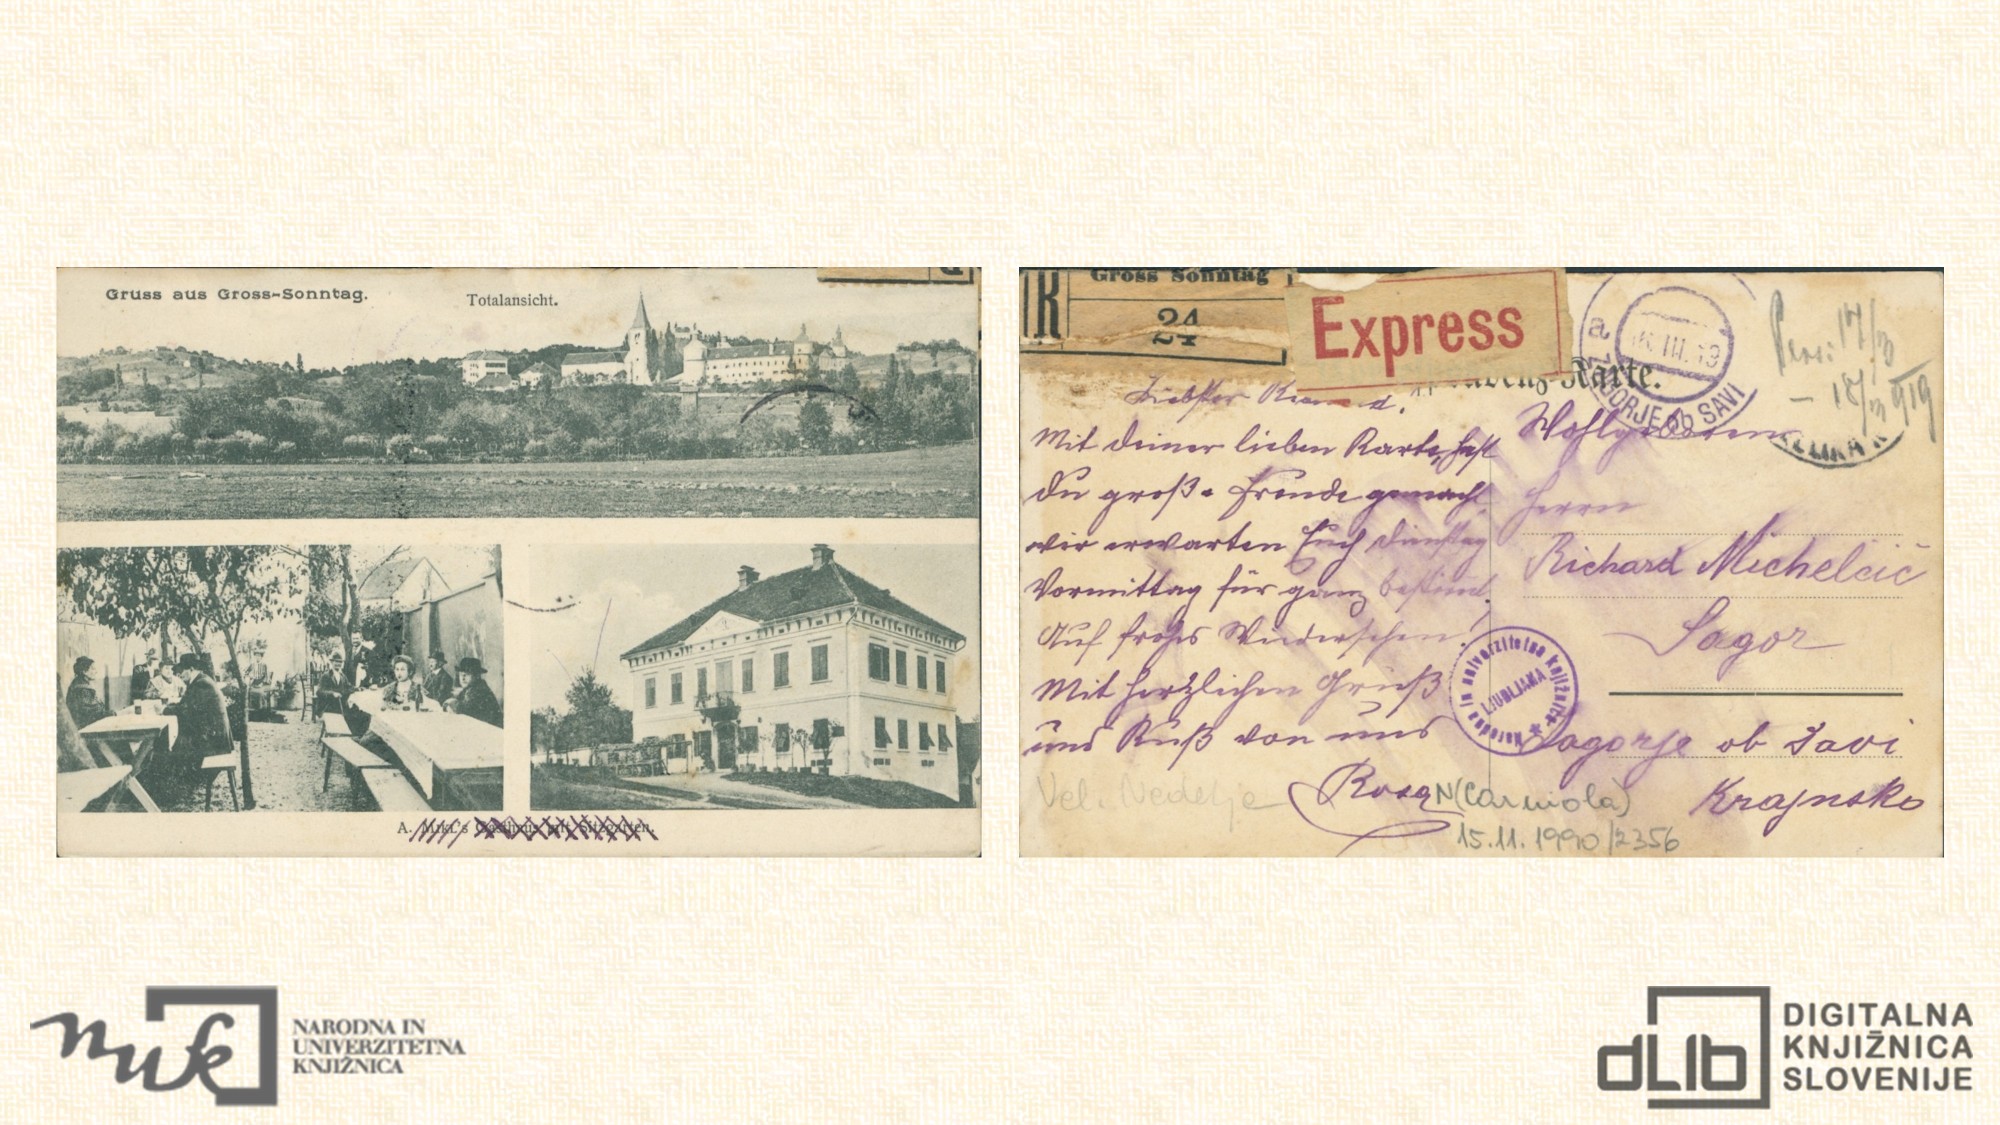 Gruss aus Gross-Sonntag.
Totalansicht.
A. Mikl's Gasthaus mit Sitzgarten.
R
Gross Sonntag
24
Express
Karte.
a ZAGORJE ob SAVI
III. 19
17/III
- 18/III 919
Liebster
Mit deiner lieben Karte hast
du große Freude gemacht.
wir erwarten Euch Dienstag
Vormittag für ganz bestimt.
Auf frohes Wiedersehen!
Mit herzlichen Gruß
und Kuß von uns
Rosa
Wohlgeboren
Herrn
Richard Michelčič
Sagor
Zagorje ob Savi
Krajnsko
Narodna in univerzitetna knjižnica
LJUBLJANA
Vel. Nedelja
N(Carniola)
15.11.1990/2356
nuk
NARODNA IN
UNIVERZITETNA
KNJIŽNICA
dLib
DIGITALNA
KNJIŽNICA
SLOVENIJE